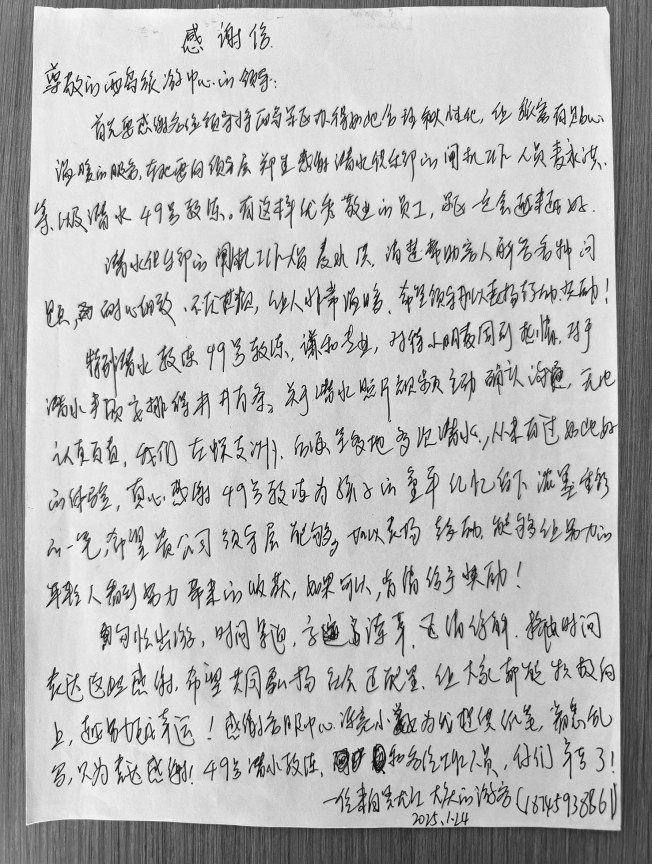 感谢信
尊敬的西岛旅游中心的领导：
首先要感谢各位领导将西岛景区办得如此合理和人性化，给游客有贴心
温暖的服务，在此要向领导层郑重感谢潜水俱乐部的闸机工作人员麦永洪
等，以及潜水49号教练。有这样优秀敬业的员工，景区一定会越来越好。
潜水俱乐部的闸机工作人员麦永洪，清楚帮助客人解答各种问
题，耐心细致，不厌其烦，让人非常温暖，希望领导加以表扬鼓励奖励！
特别潜水教练49号教练，谦和专业，对待小朋友周到热情，对于
潜水事项安排得井井有条，关于潜水照片视频主动确认沟通，无比
认真负责，我们在蜈支洲、等多地多次潜水，从来有过如此好
的体验，真心感谢49号教练为孩子的童年记忆留下浓墨重彩
的一笔，希望贵公司领导层能够加以表扬鼓励，能够让努力的
年轻人看到努力带来的收获，如果可以，肯请给予奖励！
匆忙出游，时间紧迫，字迹潦草，还请谅解，抽出时间
表达这点感谢，希望共同弘扬社会正能量，让大家都能积极向
上，越努力越幸运！感谢客服中心小为我提供纸笔，
写，只为表达感谢！49号潜水教练，和各位工作人员，你们辛苦了！
一位来自黑龙江大庆的游客（18745938861）
2025.1.24